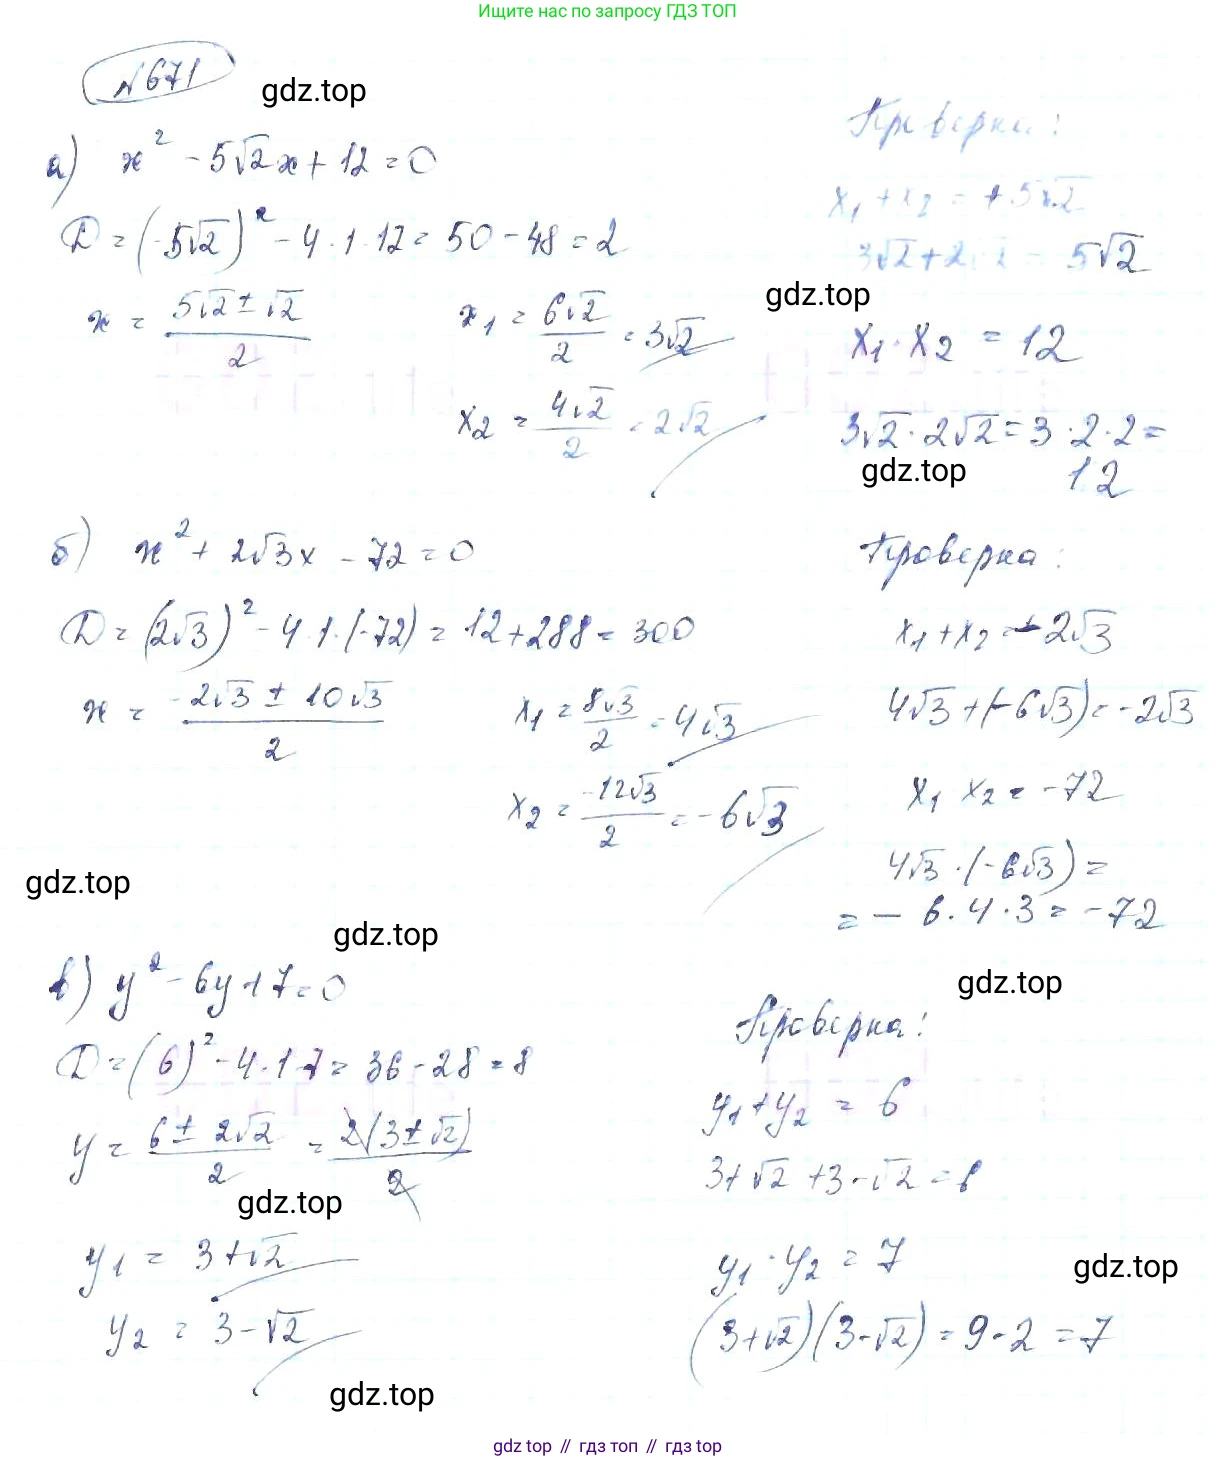 Ищите нас по запросу ГДЗ ТОП
№671
gdz.top
а) x² - 5√2x + 12 = 0
D = (-5√2)² - 4·1·12 = 50 - 48 = 2
x = (5√2 ± √2)/2
x₁ = 6√2/2 = 3√2
x₂ = 4√2/2 = 2√2
Проверка:
x₁ + x₂ = +5√2
3√2 + 2√2 = 5√2
gdz.top
x₁·x₂ = 12
3√2·2√2 = 3·2·2 =
12
gdz.top
б) x² + 2√3x - 72 = 0
D = (2√3)² - 4·1·(-72) = 12 + 288 = 300
x = (-2√3 ± 10√3)/2
x₁ = 8√3/2 = 4√3
x₂ = -12√3/2 = -6√3
Проверка:
x₁ + x₂ = -2√3
4√3 + (-6√3) = -2√3
x₁ x₂ = -72
4√3·(-6√3) =
= - 6·4·3 = -72
gdz.top
gdz.top
gdz.top
в) y² - 6y + 7 = 0
D = (6)² - 4·1·7 = 36 - 28 = 8
y = (6 ± 2√2)/2 = 2(3 ± √2)/2
gdz.top
y₁ = 3 + √2
y₂ = 3 - √2
gdz.top
Проверка:
y₁ + y₂ = 6
3 + √2 + 3 - √2 = 6
y₁·y₂ = 7
gdz.top
(3 + √2)(3 - √2) = 9 - 2 = 7
gdz top // гдз топ // gdz top